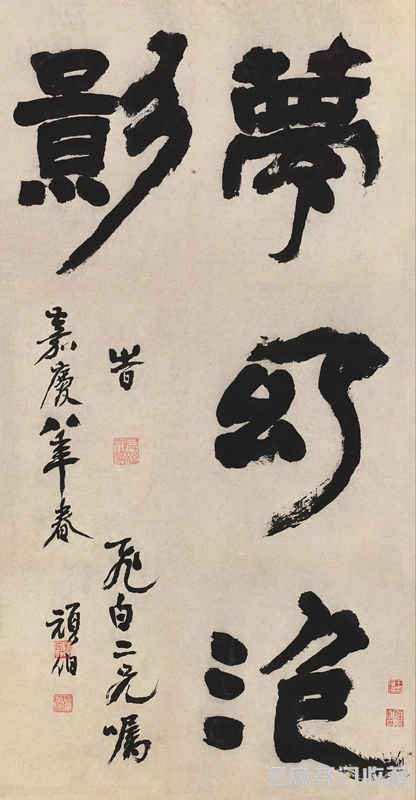 夢幻泡
影
旹
飛白二兄囑
嘉慶八年春
頑伯